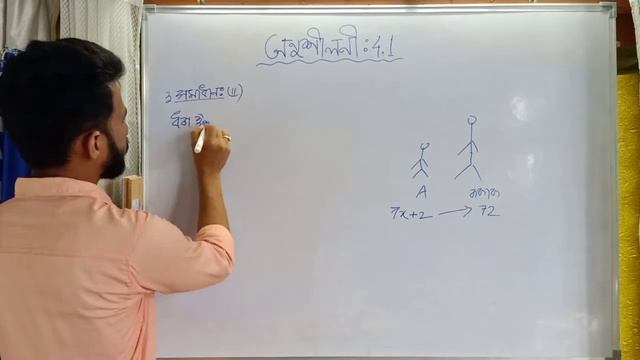 অনুশীলনী: 4.1
3 সমাধান: (ii)
ধরা
A
7x+2 → 72